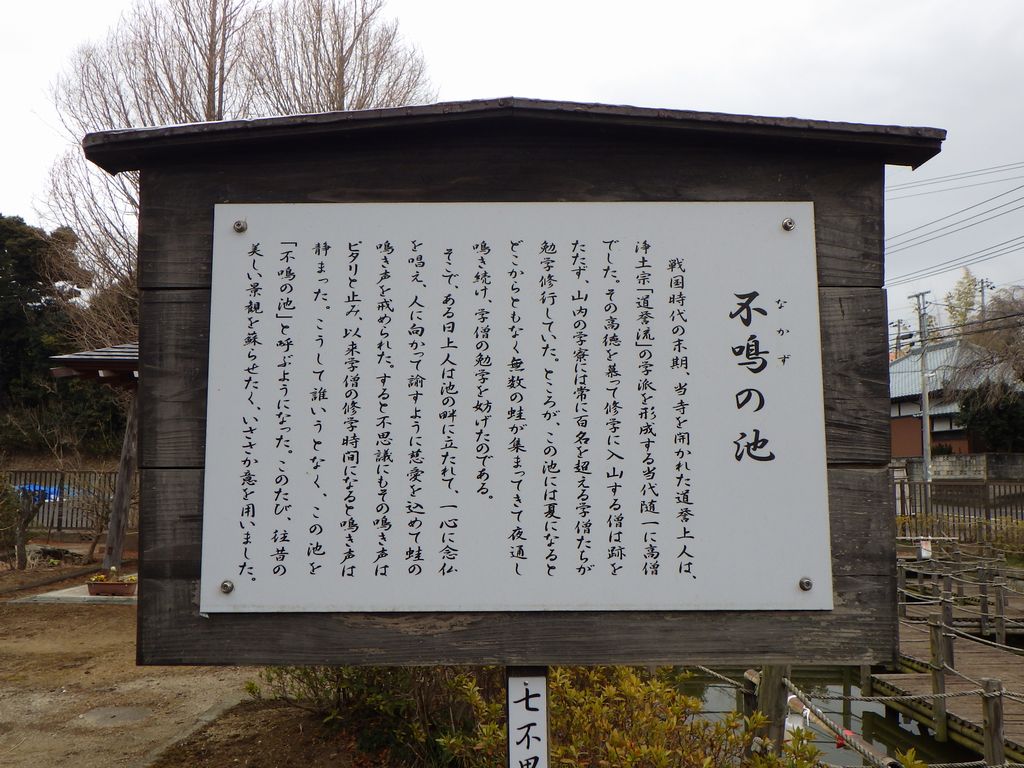 不鳴の池
なかず
戦国時代の末期、当寺を開かれた道誉上人は、
浄土宗「道誉流」の学派を形成する当代随一に高僧
でした。その高徳を慕って修学に入山する僧は跡を
たたず、山内の学寮には常に百名を超える学僧たちが
勉学修行していた。ところが、この池には夏になると
どこからともなく無数の蛙が集まってきて夜通し
鳴き続け、学僧の勉学を妨げたのである。
そこで、ある日上人は池の畔に立たれて、一心に念仏
を唱え、人に向かって諭すように慈愛を込めて蛙の
鳴き声を戒められた。すると不思議にもその鳴き声は
ピタリと止み、以来学僧の修学時間になると鳴き声は
静まった。こうして誰いうとなく、この池を
「不鳴の池」と呼ぶようになった。このたび、往昔の
美しい景観を蘇らせたく、いささか意を用いました。
七不思